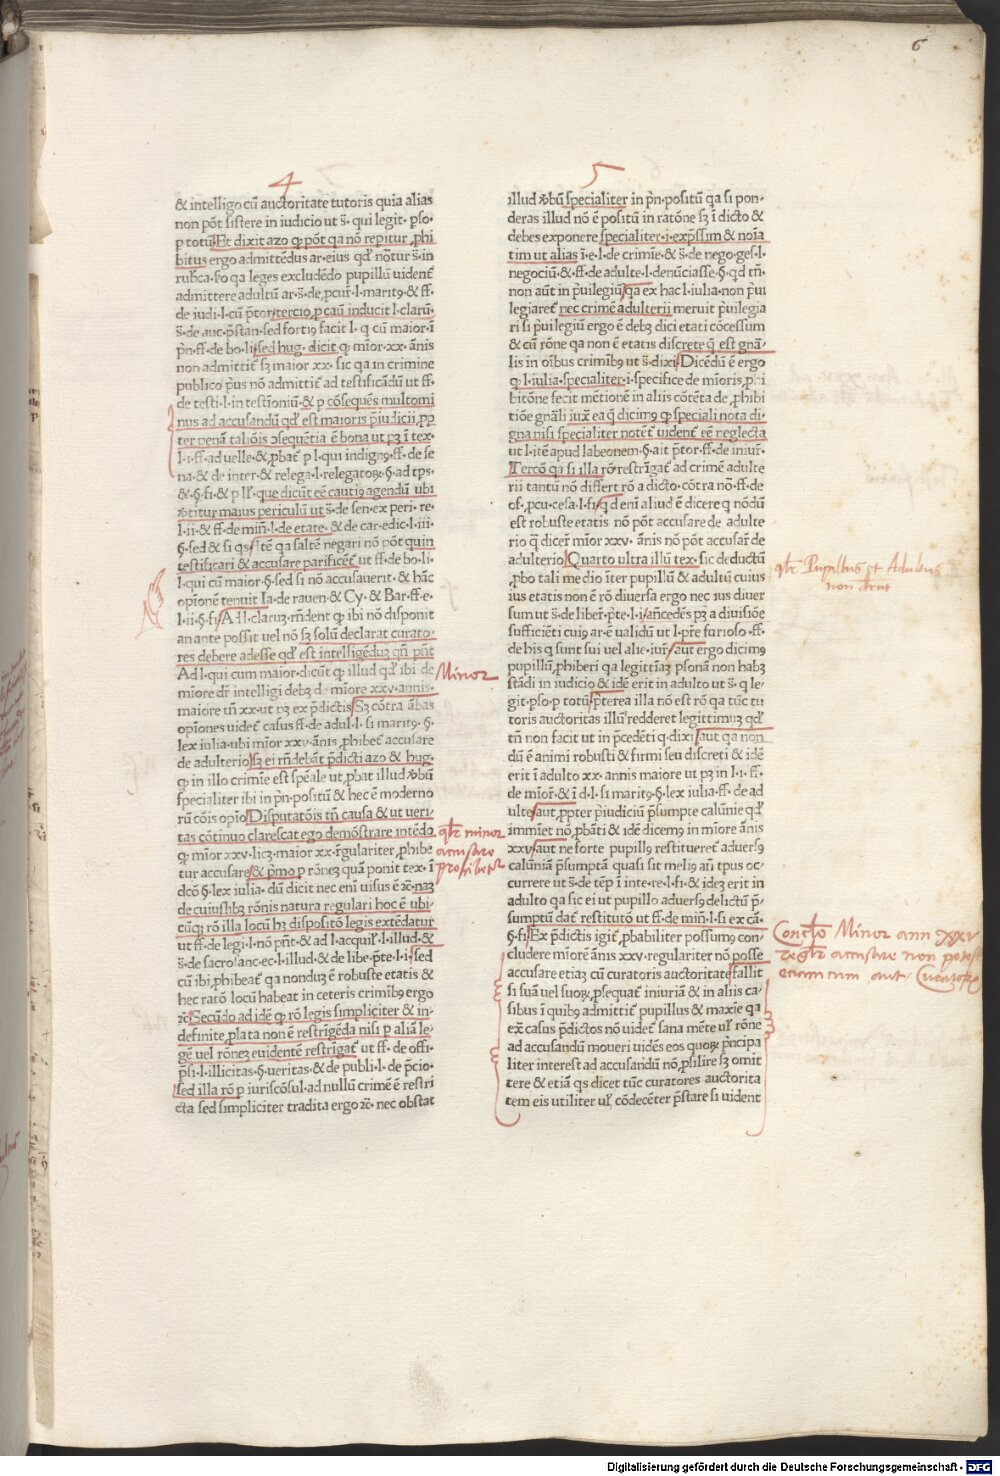 6
4
& intelligo cū auctoritate tutoris quia alias
non pōt sistere in iudicio ut s̄· qui legit· pso·
p totū Et dixit azo qp pōt qa nō repitur phi
bitus ergo admittēdus ar·eius qđ notur s̄·in
rubca·Fo qa leges excludēdo pupillū uident̄
admittere adultū ar·s̄·de pcur·l·marit9·& ff·
de iudi·l·cū ptor tercio p casū inducit l·clarū·
s̄·de auc·pstan·sed forti9 facit l· q cū maior·ī
pn·ff·de bo·li sed hug· dicit qp mior·xx·ānis
non admittit̄ sz maior xx· sic qa in crimine
publico pus nō admittit̄ ad testificādū ut ff·
de testi·l·in testīoniū·& p cōsequēs multomi
nus ad accusandū qđ est maioris piudicii pp
ter penā taliōis ɔsequētia ē bona ut pz ī tex·
l·i·ff·ad uelle·& pbat̄ p l·qui indign9·ff·de se
na·& de inter·& relega·l·relegatoꝝ·§·ad tps·
&·§·fi·& p l·que dicūt eē cauti9 agendū ubi
utitur maius periculū ut s̄·de sen·ex peri·re·
l·ii·& ff·de min·l·de etate·& de car·edic·l·iii·
§·sed & si qs itē qa saltē negari nō pōt quin
testificari & accusare parificēt̄ ut ff·de bo·li·
l·qui cū maior·§·sed si nō accusauerit·& hāc
opionē tenuit Ia·de rauen·& Cy·& Bar·ff·e·
l·ii·§·fi Ad l·claruz·rndent qp ibi nō disponit
an ante possit uel nō sz solū declarat curato·
res debere adesse qđ est intelligēduz qn pnt
Ad l·qui cum maior·dicūt qp illud qđ ibi de
miore dr intelligi debz d· miore xxv·annis·
maiore tn xx·ut pz ex pdictis Sz cōtra ābas
opiones uidet̄ casus ff·de adul·l·si marit9·§·
lex iulia·ubi mior xxv·ānis phibet̄ accusare
de adulterio sz ei rndebāt pdicti azo & hug·
qp in illo crimie est speale ut pbat illud ubū
specialiter ibi in pn·positū & hec ē moderno
rū cōis opio Disputatōis tn causa & ut ueri·
tas cōtinuo clarescat ego demōstrare intēdo
qp mior xxv·licz·maior xx·rgulariter phibe
tur accusare & pmo p rōnez quā ponit tex·ī
dcō §·lex iulia· dū dicit nec eni uisus ē ꝛc·naz
de cuiuslibz rōnis natura regulari hoc ē ubi·
cūqz rō illa locū hz dispositō legis extēdatur
ut ff·de legi·l·nō pnt·& ad l·acquir·l·illud·&
s̄·de sacrosanc·ec·l·illud·& de libe·pte·l·i sed
cū ibi phibeat̄ qa nonduz ē robuste etatis &
hec ratō locū habeat in ceteris crimib9 ergo
ꝛc Secūdo ad idē qp rō legis simpliciter & in·
definite plata non ē restrigēda nisi p aliā le·
gē uel rōnez euidentē restrigat̄ ut ff·de offi·
psi·l·illicitas·§·ueritas·& de publi·l·de pcio·
sed illa rō p iuriscōsul·ad nullū crimē ē restri
cta sed simpliciter tradita ergo ꝛc·nec obstat
Minor
qđ minor
accusare
prohibetur
5
illud ubū specialiter in pn·positū qa si pon·
deras illud nō ē positū in ratōne sz ī dicto &
debes exponere specialiter·i·expssim & noīa
tim ut alias ī·e·l·de crimie·& s̄·de nego·ges·l·
negociū·& ff·de adulte·l·denūciasse·§·qđ tn·
non aūt in puilegiū qa ex hac l·iulia·non pui
legiaret̄ nec crimē adulterii meruit puilegia
ri si puilegiū ergo ē debz dici etati cōcessum
& cū rōne qa non ē etatis discrete q̄ est gnā·
lis in oībus crimib9 ut s̄·dixi Dicēdū ē ergo
qp l·iulia·specialiter·i·specifice de mioris phi
bitōne fecit mētionē in aliis cōtēta de phibi
tiōe gnāli iux ea q̄ dicim9 qp speciali nota di·
gna nisi specialiter notēt̄ uident̄ eē neglecta
ut l·itē apud labeonem·§·ait ptor·ff·de iniur·
Tercō qa si illa rō restrīgat̄ ad crimē adulte
rii tantū nō differt rō a dicto·cōtra nō·ff·de
of·pcu·cesa·l·fi qđ enī aliud ē dicere q nōdū
est robuste etatis nō pōt accusare de adulte
rio q̄ dicer mior xxv·ānis nō pōt accusar de
adulterio Quarto ultra illū tex·sic deductū
pbo tali medio īter pupillū & adultū cuius
ius etatis non ē rō diuersa ergo nec ius diuer
sum ut s̄·de liber·pte·l·i ancedēs pz a diuisiōe
sufficiēti cui9 ar·ē ualidū ut l·pre furioso·ff·
de his q sunt sui uel alie·iur aut ergo dicim9
pupillū phiberi qa legittiaz psonā non habz
stādi in iudicio & idē erit in adulto ut s̄·q le·
git·pso·p totū pterea illa nō est rō qa tūc tu
toris auctoritas illu redderet legittimuz qđ
tn non facit ut in pcedēti q·dixi aut qa non
dū ē animi robusti & firmi seu discreti & idē
erit ī adulto xx· annis maiore ut pz in l·i·ff·
de mior·& ī d·l·si marit9·§·lex iulia·ff·de ad
ulte aut ppter piudiciū psumpte calūnie qđ
imminet nō pbāti & idē dicem9 in miore ānis
xxv aut ne forte pupill9 restitueret̄ aduers9
calūniā psumptā quasi sit meli9 añ tpus oc·
currere ut s̄·de tēp ī inte·re·l·fi·& idez erit in
adulto qa sic ei ut pupillo aduers9 delictū p·
sumptū dat̄ restitutō ut ff·de min·l·si ex cā·
§·fi Ex pdictis igit̄ pbabiliter possum9 con·
cludere miorē ānis xxv·regulariter nō posse
accusare etiaz cū curatoris auctoritate fallit
si suā uel suoꝝ psequat̄ iniuriā & in aliis ca·
sibus ī quib9 admittit̄ pupillus & maxīe qa
ex̄ casus pdictos nō uidet̄ sana mēte ul rōne
ad accusandū moueri uidēs eos quoꝝ pncipa
liter interest ad accusandū nō psilire sz omit
tere & etiā qs dicet tūc curatores auctorita
tem eis utiliter ul cōdecēter pstare si uident
qđ Pupillus et Adultus
non drut
Concto Minor ann xxv
reglr accusare non potest
etiam cum aut. Curatoris
Digitalisierung gefördert durch die Deutsche Forschungsgemeinschaft - DFG